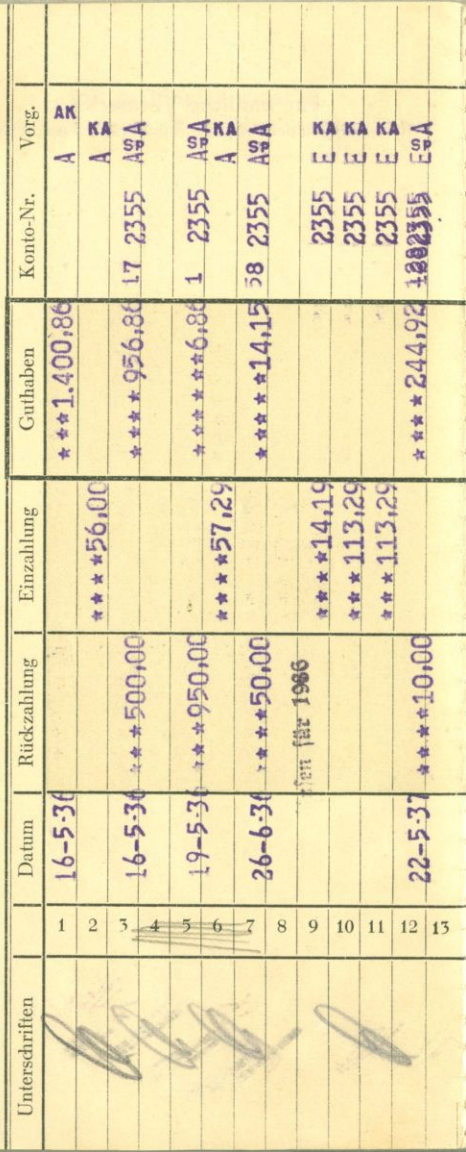 Unterschriften Datum Rückzahlung Einzahlung Guthaben Konto-Nr. Vorg.
1 16-5-36 ***1.400,86 A AK
2 ****56,00 A KA
3 16-5-36 ***500,00 ****956,86 17 2355 A SPA
4
5 19-5-36 ***950,00 ******6,86 1 2355 A SPA
6 ****57,29 A KA
7 26-6-36 ****50,00 *****14,15 58 2355 A SPA
8
9 für 1986 ****14,19 2355 E KA
10 ***113,29 2355 E KA
11 ***113,29 2355 E KA
12 22-5-37 ****10,00 ****244,92 E SPA
13